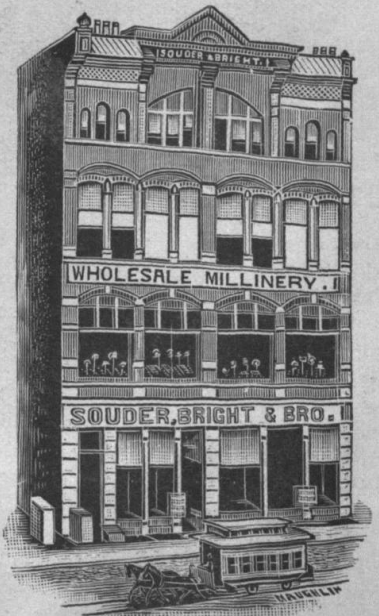 SOUDER & BRIGHT.
WHOLESALE MILLINERY.
SOUDER, BRIGHT & BRO.
NAUGHLIN